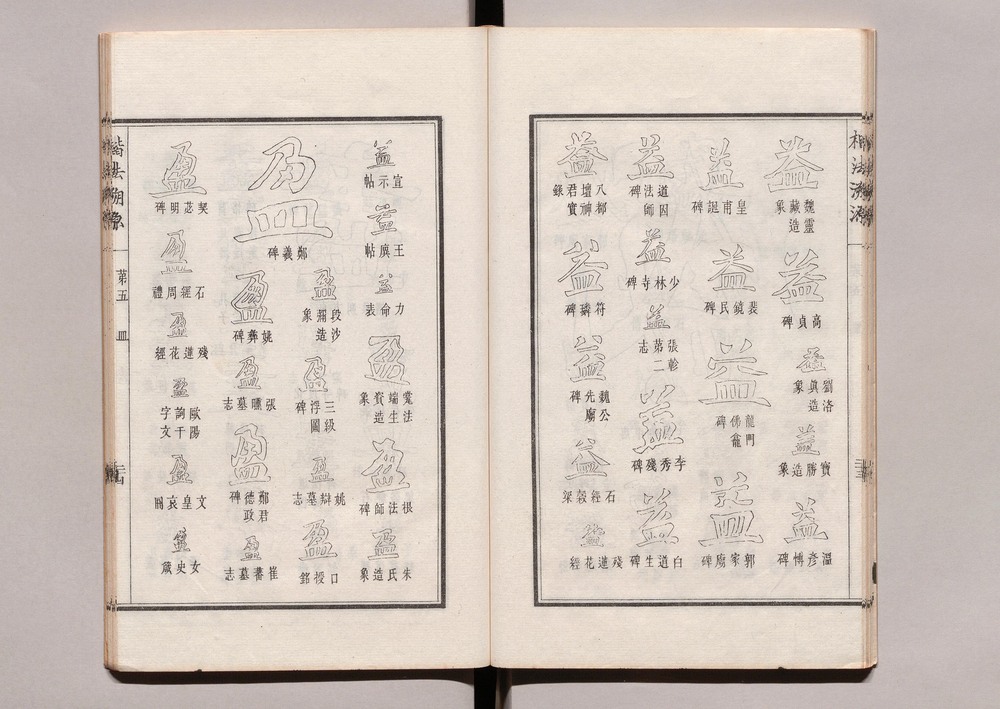 楷法溯源
益 魏靈藏造象
益 高貞碑
益 劉洛真造象
益 寶勝造象
益 溫彥博碑
益 皇甫誕碑
益 裴鏡民碑
益 龍門佛龕碑
益 郭家廟碑
益 道因法師碑
益 少林寺碑
益 張軫第二志
益 李秀殘碑
益 白道生碑
益 八都壇神君實錄
益 符璘碑
益 魏公先廟碑
益 石經穀梁
益 殘蓮花經
益 宣示帖
益 王廙帖
益 力命表
盈 法端生資造象
盈 根法師碑
盈 朱氏造象
盈 鄭羲碑
盈 段沙彌造象
盈 三級浮圖碑
盈 姚辯墓志
盈 口授銘
盈 姚彝碑
盈 張曛墓志
盈 鄭君德政碑
盈 崔蕃墓志
盈 契苾明碑
盈 石經周禮
盈 殘蓮花經
盈 歐陽詢千字文
盈 文皇哀冊
盈 女史箴
楷法溯源
第五 皿